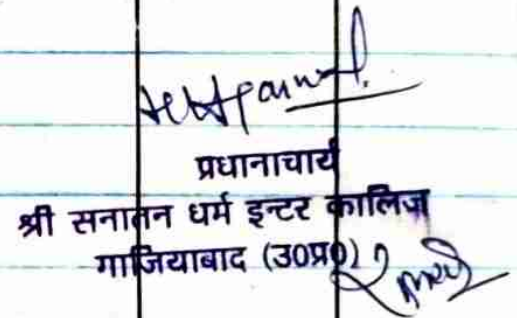 प्रधानाचार्य
श्री सनातन धर्म इन्टर कालिज
गाजियाबाद (उ0प्र0)